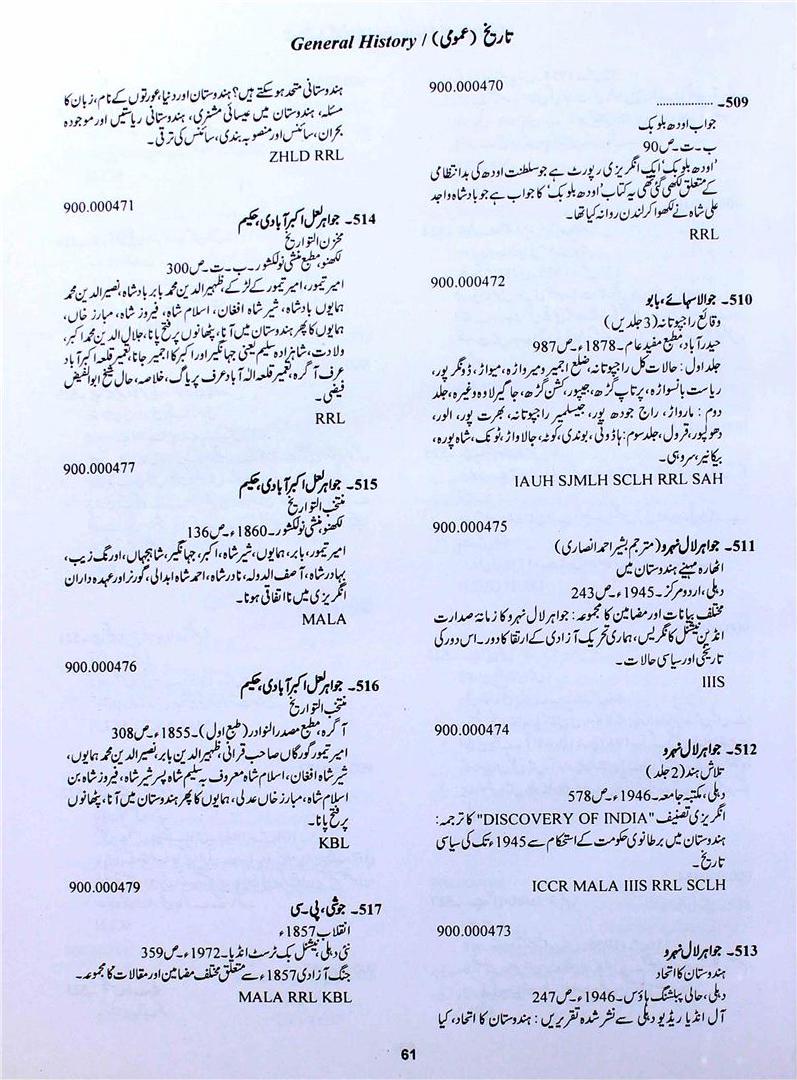 تاریخ (عمومی) / General History
900.000470
509۔ ..................
جواب اودھ بلو بک
ب۔ت۔ص90
'اودھ بلو بک' ایک انگریزی رپورٹ ہے جو سلطنت اودھ کی بدانتظامی
کے متعلق لکھی گئی تھی یہ کتاب 'اودھ بلو بک' کا جواب ہے جو بادشاہ واجد
علی شاہ نے لکھوا کر لندن روانہ کیا تھا۔
RRL
900.000472
510۔ جوالا سہائے، بابو
وقائع راجپوتانہ (3 جلدیں)
حیدرآباد، مطبع مفید عام۔ 1878ء۔ص987
جلد اول: حالات کل راجپوتانہ، ضلع اجمیر ومیرواڑہ، میواڑ، ڈونگر پور،
ریاست بانسواڑہ، پرتاپ گڑھ، جیپور، کشن گڑھ، جاگیر لاوہ وغیرہ، جلد
دوم: مارواڑ، راج جودھ پور، جیسلمیر راجپوتانہ، بھرت پور، الور،
دھولپور، قرول، جلد سوم: ہاڈوٹی، بوندی، کوٹہ، جالاواڑ، ٹونک، شاہ پورہ،
بیکانیر، سروہی۔
IAUH SJMLH SCLH RRL SAH
900.000475
511۔ جواہر لال نہرو (مترجم بشیر احمد انصاری)
اٹھارہ مہینے ہندوستان میں
دہلی، اردو مرکز۔ 1945ء۔ص243
مختلف بیانات اور مضامین کا مجموعہ: جواہر لال نہرو کا زمانۂ صدارت
انڈین نیشنل کانگریس، ہماری تحریک آزادی کے ارتقا کا دور۔ اس دور کی
تاریخی اور سیاسی حالات۔
IIIS
900.000474
512۔ جواہر لال نہرو
تلاش ہند (2 جلد)
دہلی، مکتبہ جامعہ۔ 1946ء۔ص578
انگریزی تصنیف "DISCOVERY OF INDIA" کا ترجمہ:
ہندوستان میں برطانوی حکومت کے استحکام سے 1945ء تک کی سیاسی
تاریخ۔
ICCR MALA IIIS RRL SCLH
900.000473
513۔ جواہر لال نہرو
ہندوستان کا اتحاد
دہلی، حالی پبلشنگ ہاؤس۔ 1946ء۔ص247
آل انڈیا ریڈیو دہلی سے نشر شدہ تقریریں: ہندوستان کا اتحاد، کیا
ہندوستانی متحد ہو سکتے ہیں؟ ہندوستان اور دنیا، عورتوں کے نام، زبان کا
مسئلہ، ہندوستان میں عیسائی مشنری، ہندوستانی ریاستیں اور موجودہ
بحران، سائنس اور منصوبہ بندی، سائنس کی ترقی۔
ZHLD RRL
900.000471
514۔ جواہر لعل اکبر آبادی، حکیم
مخزن التواریخ
لکھنؤ، مطبع منشی نولکشور۔ ب۔ت۔ص300
امیر تیمور، امیر تیمور کے لڑکے، ظہیر الدین محمد بابر بادشاہ، نصیر الدین محمد
ہمایوں بادشاہ، شیر شاہ افغان، اسلام شاہ، فیروز شاہ، مبارز خاں،
ہمایوں کا پھر ہندوستان میں آنا، پٹھانوں پر فتح پانا، جلال الدین محمد اکبر،
ولادت، شاہزادہ سلیم یعنی جہانگیر اور اکبر کا اجمیر جانا، تعمیر قلعہ اکبر آباد
عرف آگرہ، تعمیر قلعہ الہ آباد عرف پریاگ، خلاصہ، حال شیخ ابوالفیض
فیضی۔
RRL
900.000477
515۔ جواہر لعل اکبر آبادی، حکیم
منتخب التواریخ
لکھنؤ، منشی نولکشور۔ 1860ء۔ص136
امیر تیمور، بابر، ہمایوں، شیر شاہ، اکبر، جہانگیر، شاہجہاں، اورنگ زیب،
بہادر شاہ، آصف الدولہ، نادر شاہ، احمد شاہ ابدالی، گورنر اور عہدہ داران
انگریزی میں نااتفاقی ہونا۔
MALA
900.000476
516۔ جواہر لعل اکبر آبادی، حکیم
منتخب التواریخ
آگرہ، مطبع مصدر النوادر (طبع اول)۔ 1855ء۔ص308
امیر تیمور گورگاں صاحب قرانی، ظہیر الدین بابر، نصیر الدین محمد ہمایوں،
شیر شاہ افغان، اسلام شاہ معروف بہ سلیم شاہ پسر شیر شاہ، فیروز شاہ بن
اسلام شاہ، مبارز خاں عدلی، ہمایوں کا پھر ہندوستان میں آنا، پٹھانوں
پر فتح پانا۔
KBL
900.000479
517۔ جوشی، پی۔سی
انقلاب 1857ء
نئی دہلی، نیشنل بک ٹرسٹ انڈیا۔ 1972ء۔ص359
جنگ آزادی 1857ء سے متعلق مختلف مضامین اور مقالات کا مجموعہ۔
MALA RRL KBL
61